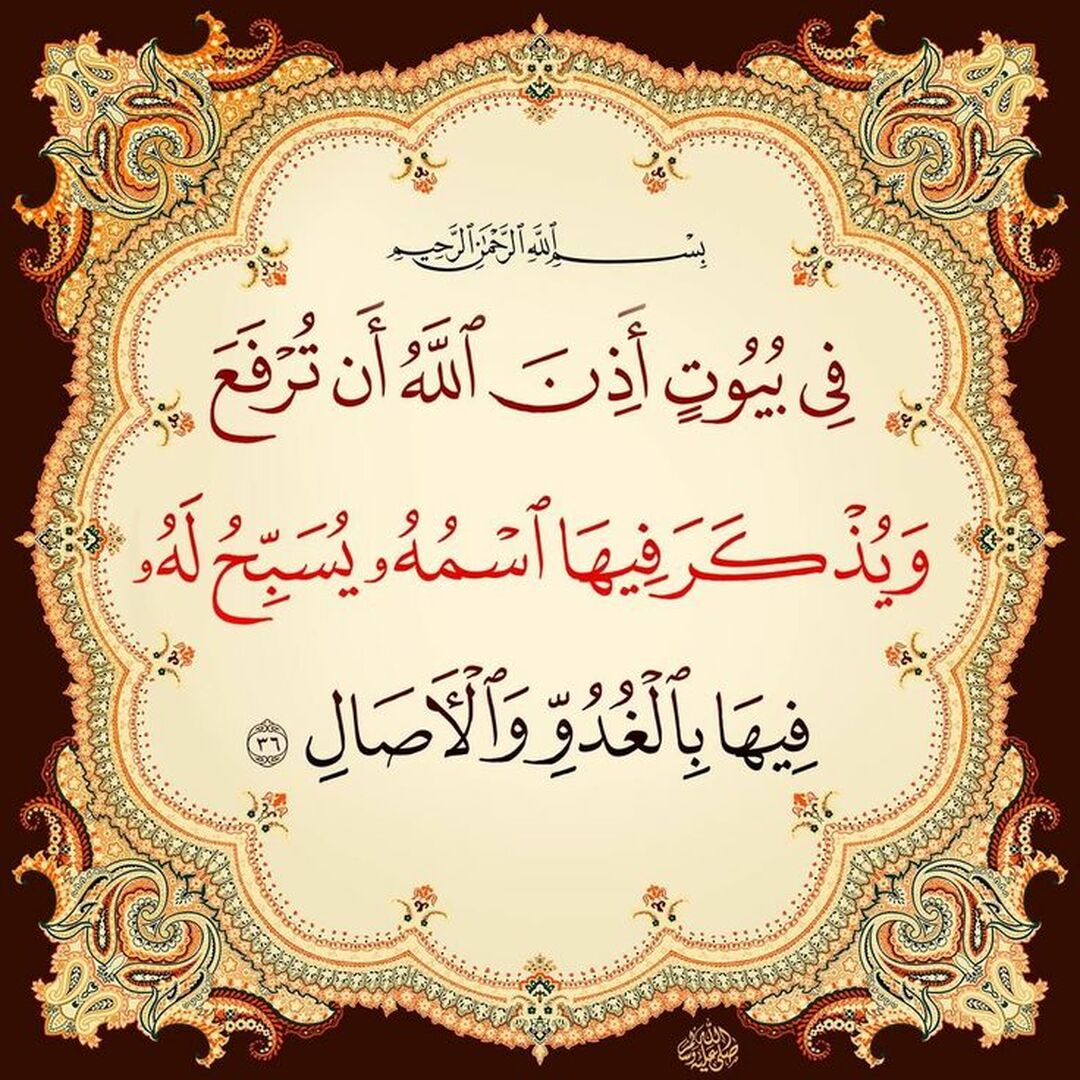 بِسْمِ ٱللَّهِ ٱلرَّحْمَٰنِ ٱلرَّحِيمِ
فِى بُيُوتٍ أَذِنَ ٱللَّهُ أَن تُرْفَعَ
وَيُذْكَرَ فِيهَا ٱسْمُهُۥ يُسَبِّحُ لَهُۥ
فِيهَا بِٱلْغُدُوِّ وَٱلْأَصَالِ ٣٦
صلى الله عليه وسلم